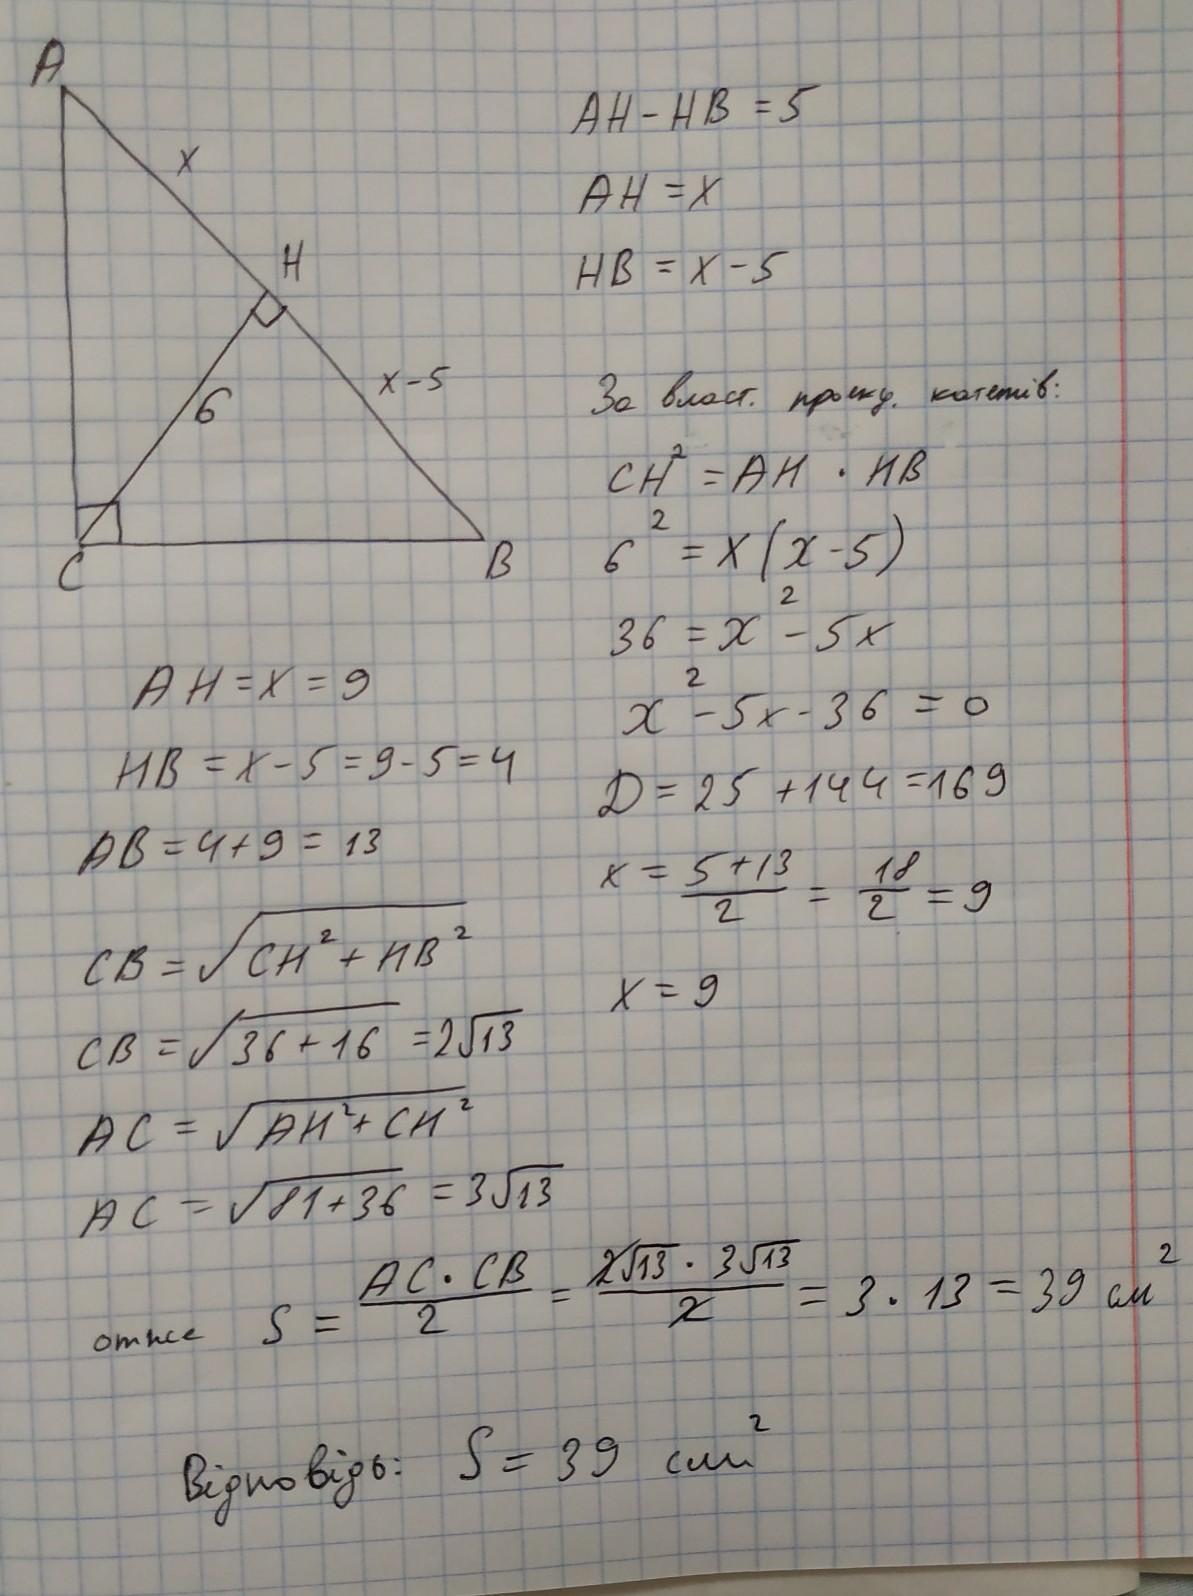 A
x
H
6
x-5
C
B
AH-HB=5
AH=x
HB=x-5
За власт. проекц. катетів:
CH²=AH·HB
6²=x(x-5)
36=x²-5x
x²-5x-36=0
D=25+144=169
x=(5+13)/2=18/2=9
x=9
AH=x=9
HB=x-5=9-5=4
AB=4+9=13
CB=√(CH²+HB²)
CB=√(36+16)=2√13
AC=√(AH²+CH²)
AC=√(81+36)=3√13
отже S=(AC·CB)/2=(2√13·3√13)/2=3·13=39 см²
Відповідь: S=39 см²